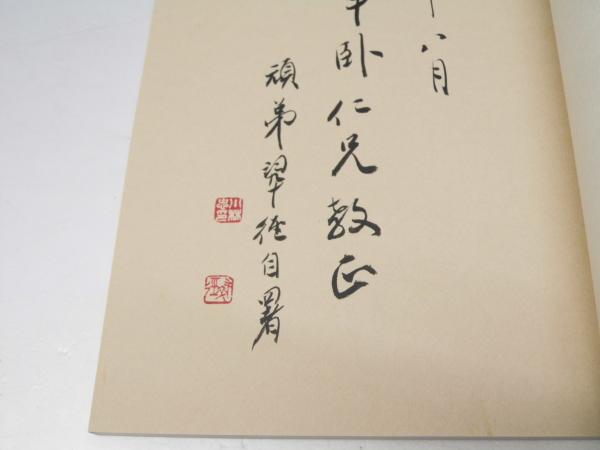 八月
卧仁兄教正
頑弟翠徑自署